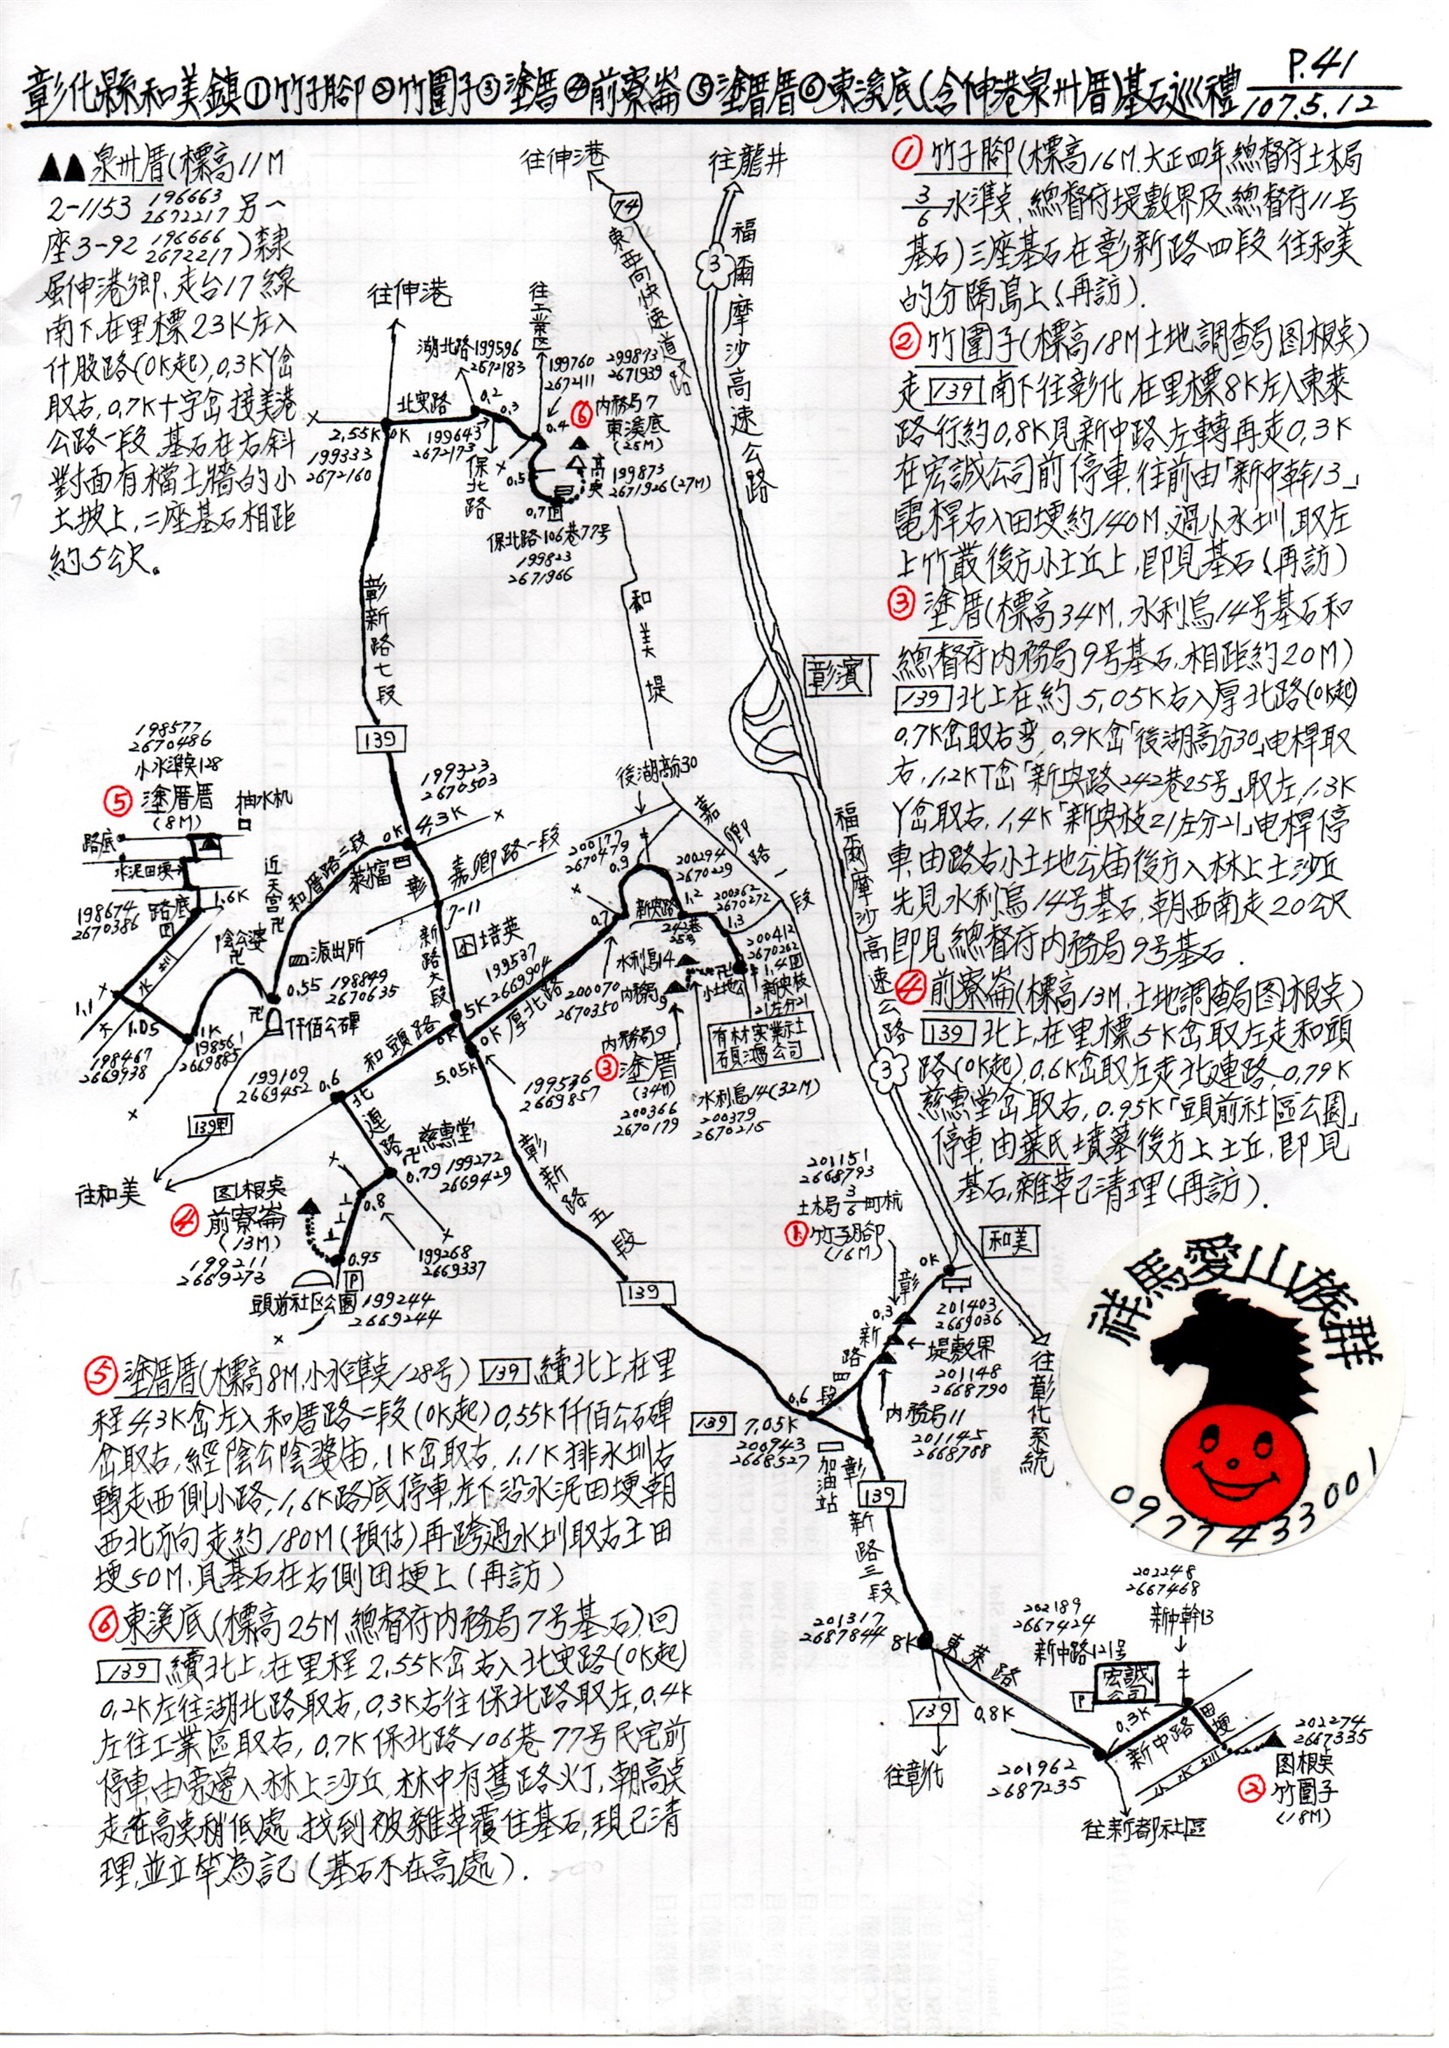 彰化縣和美鎮①竹子腳②竹圍子③塗厝④前寮崙⑤塗厝厝⑥東溪底(含伸港泉州厝)基石巡禮
P.41
107.5.12
▲▲泉州厝(標高11M
2-1153 196663 2672217 另一
座3-92 196666 2672217)隸
屬伸港鄉、走台17線
南下,在里標23K左入
什股路(0K起),0.3KY岔
取右,0.7K十字岔接美港
公路一段,基石在右斜
對面有檔土牆的小
土坡上,二座基石相距
約5公尺。
①竹子腳(標高16M.大正四年總督府土木局
3/6水準點,總督府堤敷界及總督府11号
基石)三座基石在彰新路四段往和美
的分隔島上(再訪).
②竹圍子(標高18M土地調查局图根點)
走139南下往彰化,在里標8K左入東萊
路行約0.8K見新中路左轉再走0.3K
在宏誠公司前停車,往前由「新中幹13」
電桿右入田埂約140M.過小水圳,取左
上竹叢後方小土丘上,即見基石(再訪)
③塗厝(標高34M.水利烏14号基石和
總督府内務局9号基石,相距約20M)
139北上在約5.05K右入厚北路(0K起)
0.7K岔取右弯,0.9K岔「後湖高分30」电桿取
右,1.2KT岔「新庚路242巷25号」取左,1.3K
Y岔取右,1.4K「新庚枝21左分21」电桿停
車,由路右小土地公庙後方入林上土沙丘
先見水利烏14号基石,朝西南走20公尺
即見總督府内務局9号基石.
④前寮崙(標高13M.土地調查局图根點)
139北上,在里標5K岔取左走和頭
路(0K起),0.6K岔取左走北連路,0.79K
慈惠堂岔取右,0.95K「頭前社區公園」
停車,由葉氏墳墓後方上土丘,即見
基石,雜草已清理(再訪).
往伸港
往龍井
74
東西向快速道路
3
福爾摩沙高速公路
往伸港
往工業區
湖北路
199596
2672183
199760
2672111
299873
2671939
⑥
内務局7
東溪底
(25M)
北庚路
0.2
0.3
0.4
2.55K
0K
199333
2672160
199643
2672173
保北路
0.5
高點
199873
2671926(27M)
0.7
保北路106巷77号
199823
2671966
彰新路七段
和美堤
彰濱
139
198577
2670486
小水準點128
⑤塗厝厝
(8M)
抽水机
路底
水泥田埂
198674
2670386
路底
1.6K
近天宮
陰公婆
和厝路二段
萊爾富
0K
4.3K
199323
2670503
嘉卿路一段
7-11
後湖高分30
嘉卿路一段
200177
2670479
0.9
200294
2670229
200362
2670272
新庚路
242巷
25号
0.7
1.2
1.3
200412
2670262
1.4
新庚枝
21左分21
小土地公
派出所
0.55
198849
2670635
仟佰公碑
彰新路六段
培英
199537
2669904
5K
0K
厚北路
200070
2670350
水利烏14
内務局9
有林實業
碩鴻公司
1.1
水圳
1.05
198467
2669938
1K
198561
2669885
和頭路
0K
5.05K
199536
2669857
内務局9
③塗厝
(34M)
200366
2670179
水利烏14(32M)
200379
2670215
福爾摩沙高速公路
3
199109
2669452
0.6
139甲
往和美
北連路
慈惠堂
0.79
199272
2669429
图根點
④前寮崙
(13M)
199211
2669273
0.8
0.95
199268
2669337
P
頭前社区公園
199244
2669244
彰新路五段
139
201151
2668793
土木局3/6町杭
①竹子腳
(16M)
和美
0K
201403
2669036
0.3
彰新路四段
堤敷界
201148
2668790
内務局11
201145
2668788
往彰化系統
139
7.05K
0.6
200943
2668527
加油站
139
彰新路三段
祥馬愛山族群
0977433001
⑤塗厝厝(標高8M.小水準點128号)139續北上,在里
程4.3K岔左入和厝路二段(0K起)0.55K仟佰公石碑
岔取右,經陰公陰婆庙,1K岔取右,1.1K排水圳右
轉走西側小路,1.6K路底停車,左下沿水泥田埂朝
西北方向走約180M(預估)再跨過水圳取右主田
埂50M.見基石在右側田埂上(再訪)
⑥東溪底(標高25M總督府内務局7号基石)回
139續北上,在里程2.55K岔右入北庚路(0K起)
0.2K左往湖北路取右,0.3K右往保北路取左,0.4K
左往工業區取右,0.7K保北路106巷77号民宅前
停車,由旁邊入林上沙丘,林中有舊路灯,朝高點
走在高點稍低處,找到被雜草覆住基石,現已清
理,並立竿為記(基石不在高處).
201317
2687844
8K
東萊路
139
往彰化
0.8K
202189
2667424
新中路121号
202248
2667468
新中幹13
P
宏誠公司
0.3K
新中路
田埂
小水圳
201962
2687235
往新都社區
202274
2667335
图根點
②竹圍子
(18M)